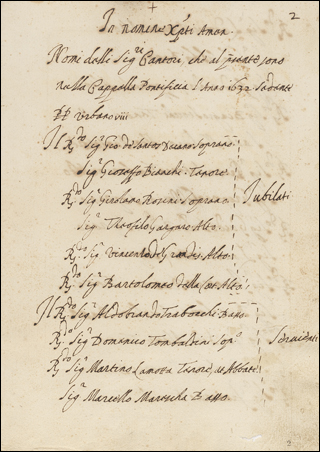 2
In nomine Xpti Amen
Nomi delli Sig.ri Cantori, che al prnte sono
nella Cappella Pontificia l'Anno 1632 Sedente
PP. Urbano viii
Il R.do Sig.r Gio: de Santos Decano Soprano
Sig.r Gioseffo Bianchi Tenore
R.do Sig.r Girolamo Rosini soprano
Jubilati
Sig.r Theofilo Gargano Alto
R.do Sig.r Vincenzo de Grandis Alto
R.do Sig.r Bartolomeo della Alto
Il R.do Sig.r Aldobrando Trabocchi Basso
R.do Sig.r Domenico Tombaldini Sop.o
R.do Sig.r Martino Lamotta Tenore, et Abbate
Sig.r Marcello Basso
2